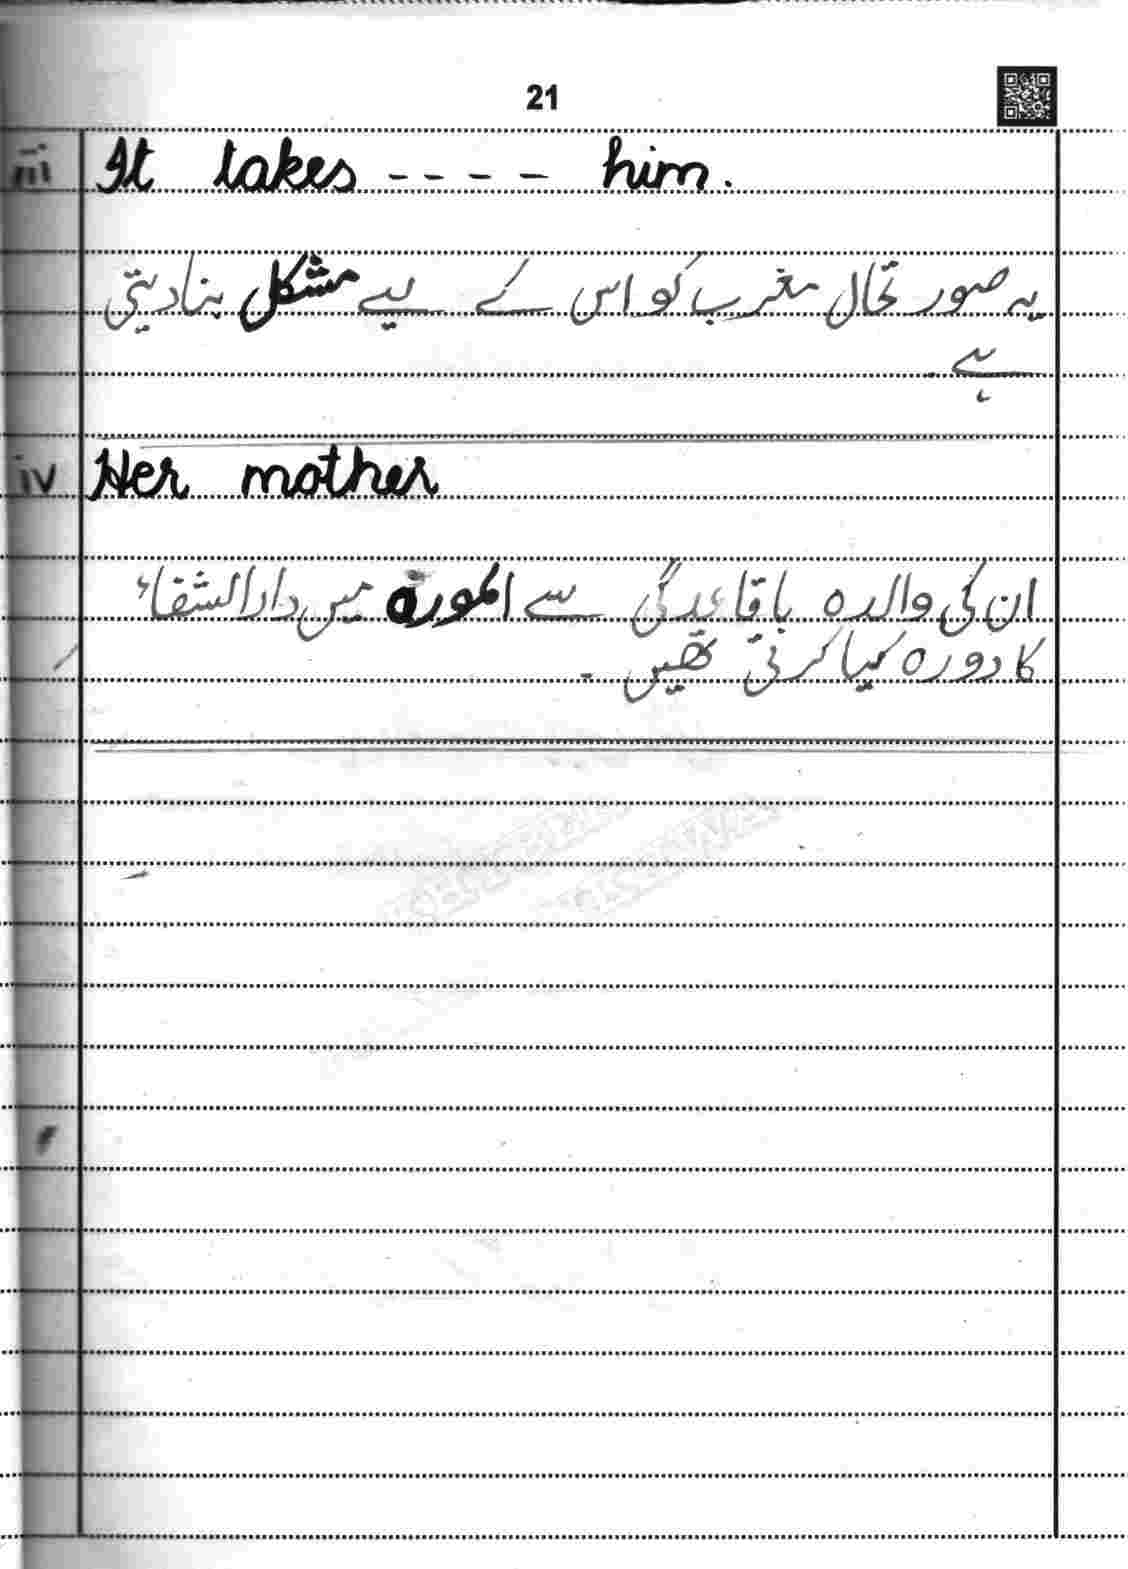 21
iii It takes - - - - him.
یہ صورتحال مغرب کو اس کے لیے مشکل بنا دیتی
ہے
iv Her mother
ان کی والدہ باقاعدگی سے المورہ میں دارالشفاء
کا دورہ کیا کرتی تھیں ۔